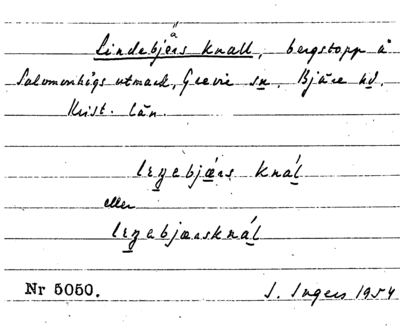 ä
Lindebjers knall, bergstopp å
Salomonhögs utmark, Grevie sn, Bjäre hd.
Krist. län.
lɪŋebjǽrs knál
eller
lɪŋebjærsknál
Nr 5050. I. Ingers 1954